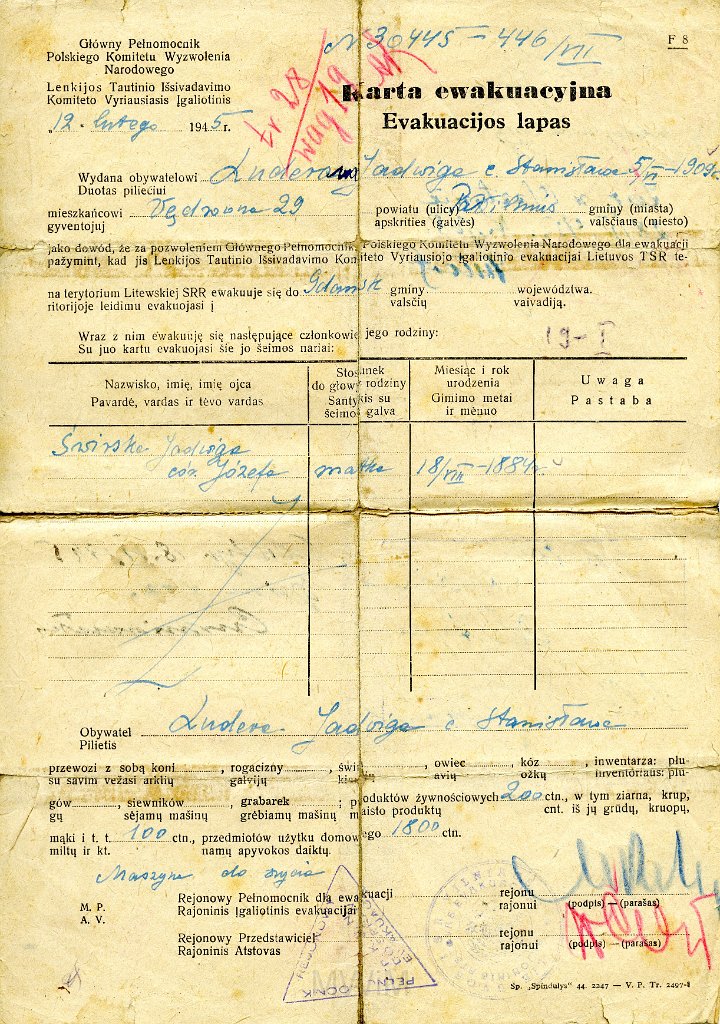 Główny Pełnomocnik
Polskiego Komitetu Wyzwolenia
Narodowego
Lenkijos Tautinio Išsivadavimo
Komiteto Vyriausiasis Įgaliotinis
„12. lutego 1945 r.
N 30445 – 446/VII
F 8
Nr 28
wag 19
Karta ewakuacyjna
Evakuacijos lapas
Wydana obywatelowi Jadwiga c. Stanisława 5/VI – 1909 r.
Duotas piliečiui
mieszkańcowi 29 powiatu (ulicy) gminy (miasta)
gyventojuj apskrities (gatvės) valsčiaus (miesto)
jako dowód, że za pozwoleniem Głównego Pełnomocnika Polskiego Komitetu Wyzwolenia Narodowego dla ewakuacji
pažymint, kad jis Lenkijos Tautinio Išsivadavimo Komiteto Vyriausiojo Įgaliotinio evakuacijai Lietuvos TSR te-
na terytorium Litewskiej SRR ewakuuje się do Gdańsk gminy województwa.
ritorijoje leidimu evakuojasi į valsčių vaivadiją.
Wraz z nim ewakuuję się następujące członkowie jego rodziny:
Su juo kartu evakuojasi šie jo šeimos nariai:
19–I
Nazwisko, imię, imię ojca
Pavardė, vardas ir tėvo vardas
Stosunek
do głowy rodziny
Santykis su
šeimos galva
Miesiąc i rok
urodzenia
Gimimo metai
ir mėnuo
Uwaga
Pastaba
Świrska Jadwiga
cór. Józefa matka 18/VIII – 1884 r.
Obywatel Ludera Jadwiga c Stanisława
Pilietis
przewozi z sobą koni , rogacizny , owiec , kóz , inwentarza: płu-
su savim vežasi arklių galvijų avių ožkų inventoriaus: plu-
gów , siewników , grabarek ; produktów żywnościowych 200 ctn., w tym ziarna, krup,
gų sėjamų mašinų grėbiamų mašinų maisto produktų cnt. iš jų grūdų, kruopų,
mąki i t. t. 100 ctn., przedmiotów użytku domowego 1800 ctn.
miltų ir kt. namų apyvokos daiktų.
Maszyna do szycia
M. P.
A. V.
Rejonowy Pełnomocnik dla ewakuacji rejonu
Rajoninis Įgaliotinis evakuacijai rajonui (podpis) — (parašas)
Rejonowy Przedstawiciel rejonu
Rajoninis Atstovas rajonui (podpis) — (parašas)
Sp. „Spindulys" 44. 2247 — V. P. Tr. 2497-I